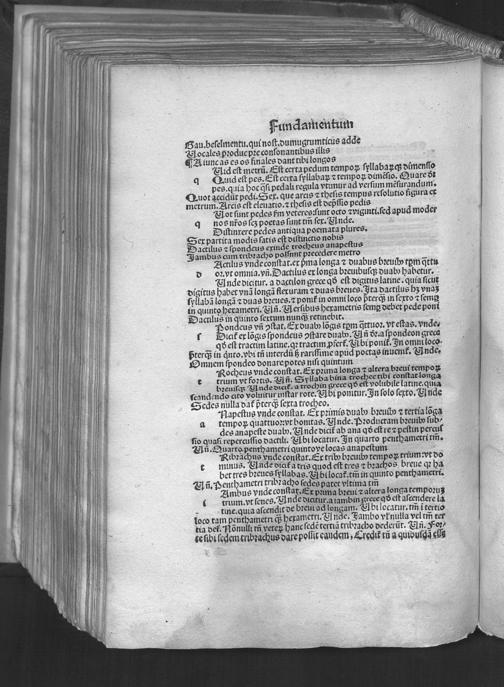 Fundamentum
Gau. beselmentu. qui nost. dumugrumticus adde
Vocales produc pre consonantibus illis
Aiuncas es os finales dant tibi longos
Uid est metrū. Est certa pedum tempoꝝ syllabaꝝqꝫ dimensio
q Quid est pes. Est certa syllabaꝝ ⁊ tempoꝝ dimēsio. Quare dr̄
pes. quia hoc qͥsqꝫ pedali regula vtimur ad versum mēsurandum.
Quot accidūt pedi. Sex. que arsis ⁊ thesis tempus resolutio figura et
metrum. Arsis est eleuatio. ⁊ thesis est depͥssio pedis
Uot sunt pedes fm veteres sunt octo ⁊ viginti. sed apud moder
q nos nr̄os sꝫ poetas sunt tm̄ sex. Unde.
Distinxere pedes antiqua poemata plures.
Sex partita modis satis est distinctio nobis
Dactilus ⁊ spondeus exinde trocheus anapestus
Jambus cum tribracho possunt precedere metro
Actilus vnde constat. ex pͥma longa ⁊ duabus breuibꝰ
d or. vt omnia. vn̄. Dactilus ex longa breuibusqꝫ duabꝰ habetur.
Unde dicitur. a dactilon grece qd est digitus latine. quia sicut
digitus habet vnā longā ⁊ duas breues. Ita dactilus hꝫ vnaꝫ
syllabā longā ⁊ duas breues. ⁊ ponit in omni loco pͥterqꝫ in sexto ⁊ semꝑ
in quinto hexametri. Un̄. Uersibus hexametris semꝑ debet pede poni
Dactilus in quinto sextum nunqꝫ retinebit.
Pondeus vn̄ ɔstat. Ex duabꝰ lōgis vt estas. vnde.
s Dicit ex lōgis spondeus ɔstare duabꝰ. Un̄ dr̄. a spondeon grece
qd est tractim latine. Ubi ponit. In omni loco
pͥterqꝫ in qͥnto. vbi tn̄ interdū ⁊ rarissime apud poetas inuenit. Unde.
Omnem spondeo dare potes nisi quintum
Rocheus vnde constat. Ex prima longa ⁊ altera breui tempoꝝ
t trium vt fortis. Un̄. Syllaba bina trocheū tibi constat longa
breuisqꝫ. Unde dicit. a trochin grece qd est volubile latine. quia
scandendo cito voluitur instar rote. Ubi ponitur. In solo sexto. Unde
Sedes nulla dat pͥterqꝫ sexta trocheo.
Napestus vnde constat. Ex primis duabꝰ breuibꝰ ⁊ tertia lōga
a tempoꝝ quattuor. vt bonitas. Unde. Productam breuibꝰ sub
des anapeste duabꝰ. Unde dicit ab ana qd est re ⁊ pestin percus
sio quasi repercussio dactili. Ubi locatur. In quarto penthametri tm̄.
Un̄. Quarto penthametri quintoqꝫ locas anapestum
Ribrachus vnde constat. Ex tribꝰ breuibꝰ tempoꝝ trium. vt do
t minus. Unde dicit a tris quod est tres ⁊ brachos breue qꝛ ha
bet tres breues syllabas. Ubi locat. tm̄ in quinto penthametri.
Un̄. Penthametri tribracho sedes patet vltima tm̄
Ambus vnde constat. Ex prima breui ⁊ altera longa tempoꝝ
i trium. vt senes. Unde dicitur. a iambin grece qd est ascendere la
tine. quia ascendit de breui ad longam. Ubi locatur. tm̄ in tertio
loco tam penthametri qꝫ hexametri. Unde. Jambo vel nulla vel tm̄ ter
tia def. Nōnulli tn̄ veteꝝ hanc sedē tertiā tribracho dederūt. Un̄. For
te sibi sedem tribrachus dare possit eandem, Credit tn̄ a quibusdā esse